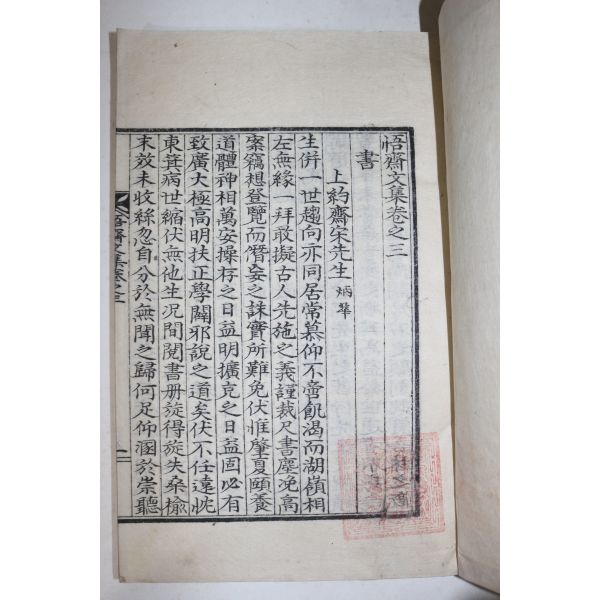 悟齋文集卷之三
書
上約齋宋先生 炳華
生併一世趨向亦同居常慕仰不啻飢渴而湖嶺相
左無緣一拜敢擬古人先施之義謹裁尺書塵浼高
案竊想登覽而僭妄之誅實所難免伏惟肇夏頤養
道體神相萬安操存之日益明擴充之日益固必有
致廣大極高明扶正學闢邪說之道矣伏不任遠忱
東箕病世縮伏無他生况間閱書册旋得旋失桑楡
末效未收絲忽自分於無聞之歸何足仰溷於崇聽
悟齋文集卷之三
一